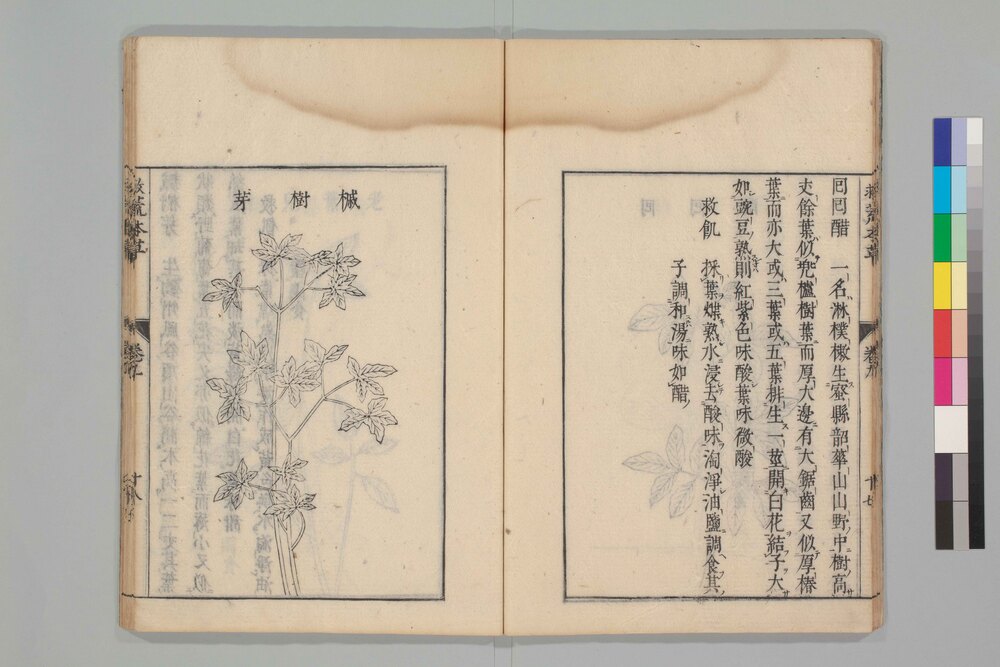 回回醋 一名淋樸樕生密縣韶華山山野中樹高
丈餘葉似兜櫨樹葉而厚大邊有大鋸齒又似厚椿
葉而亦大或三葉或五葉排生一莖開白花結子大
如豌豆熟則紅紫色味酸葉味微酸
救飢 採葉煠熟水浸去酸味淘淨油鹽調食其
子調和湯味如醋
卷九
槭樹芽
救荒本草
卷九
十八